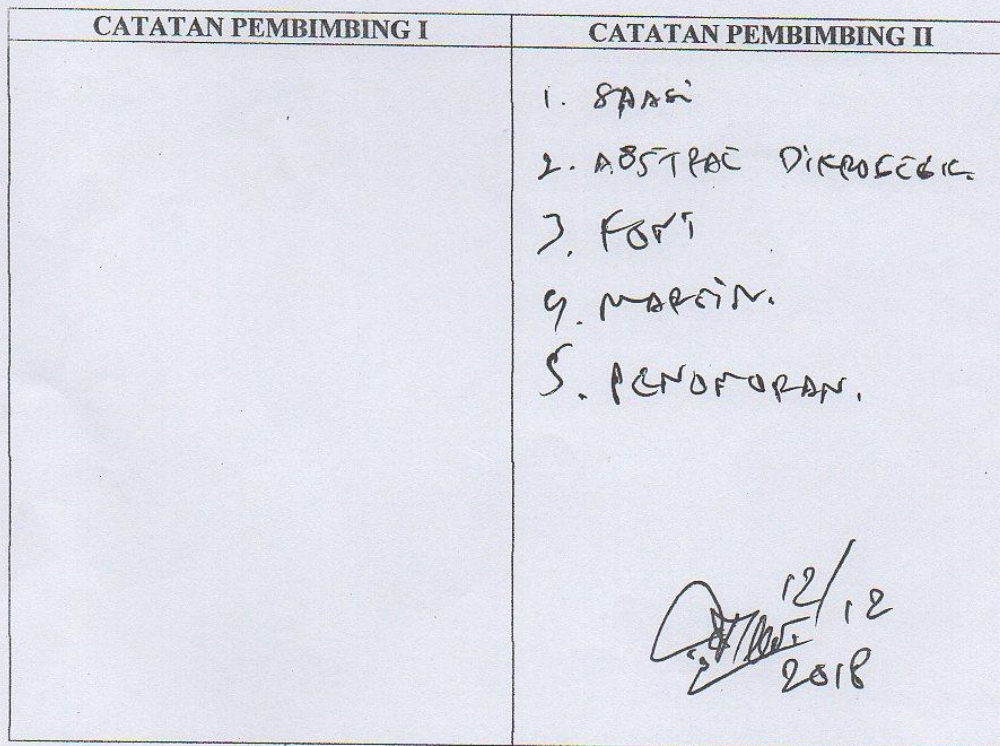 CATATAN PEMBIMBING I
CATATAN PEMBIMBING II
1. SPASI
2. ABSTRAC
3. FONT
4. MARGIN.
5. PENOMORAN.
12/12
2018